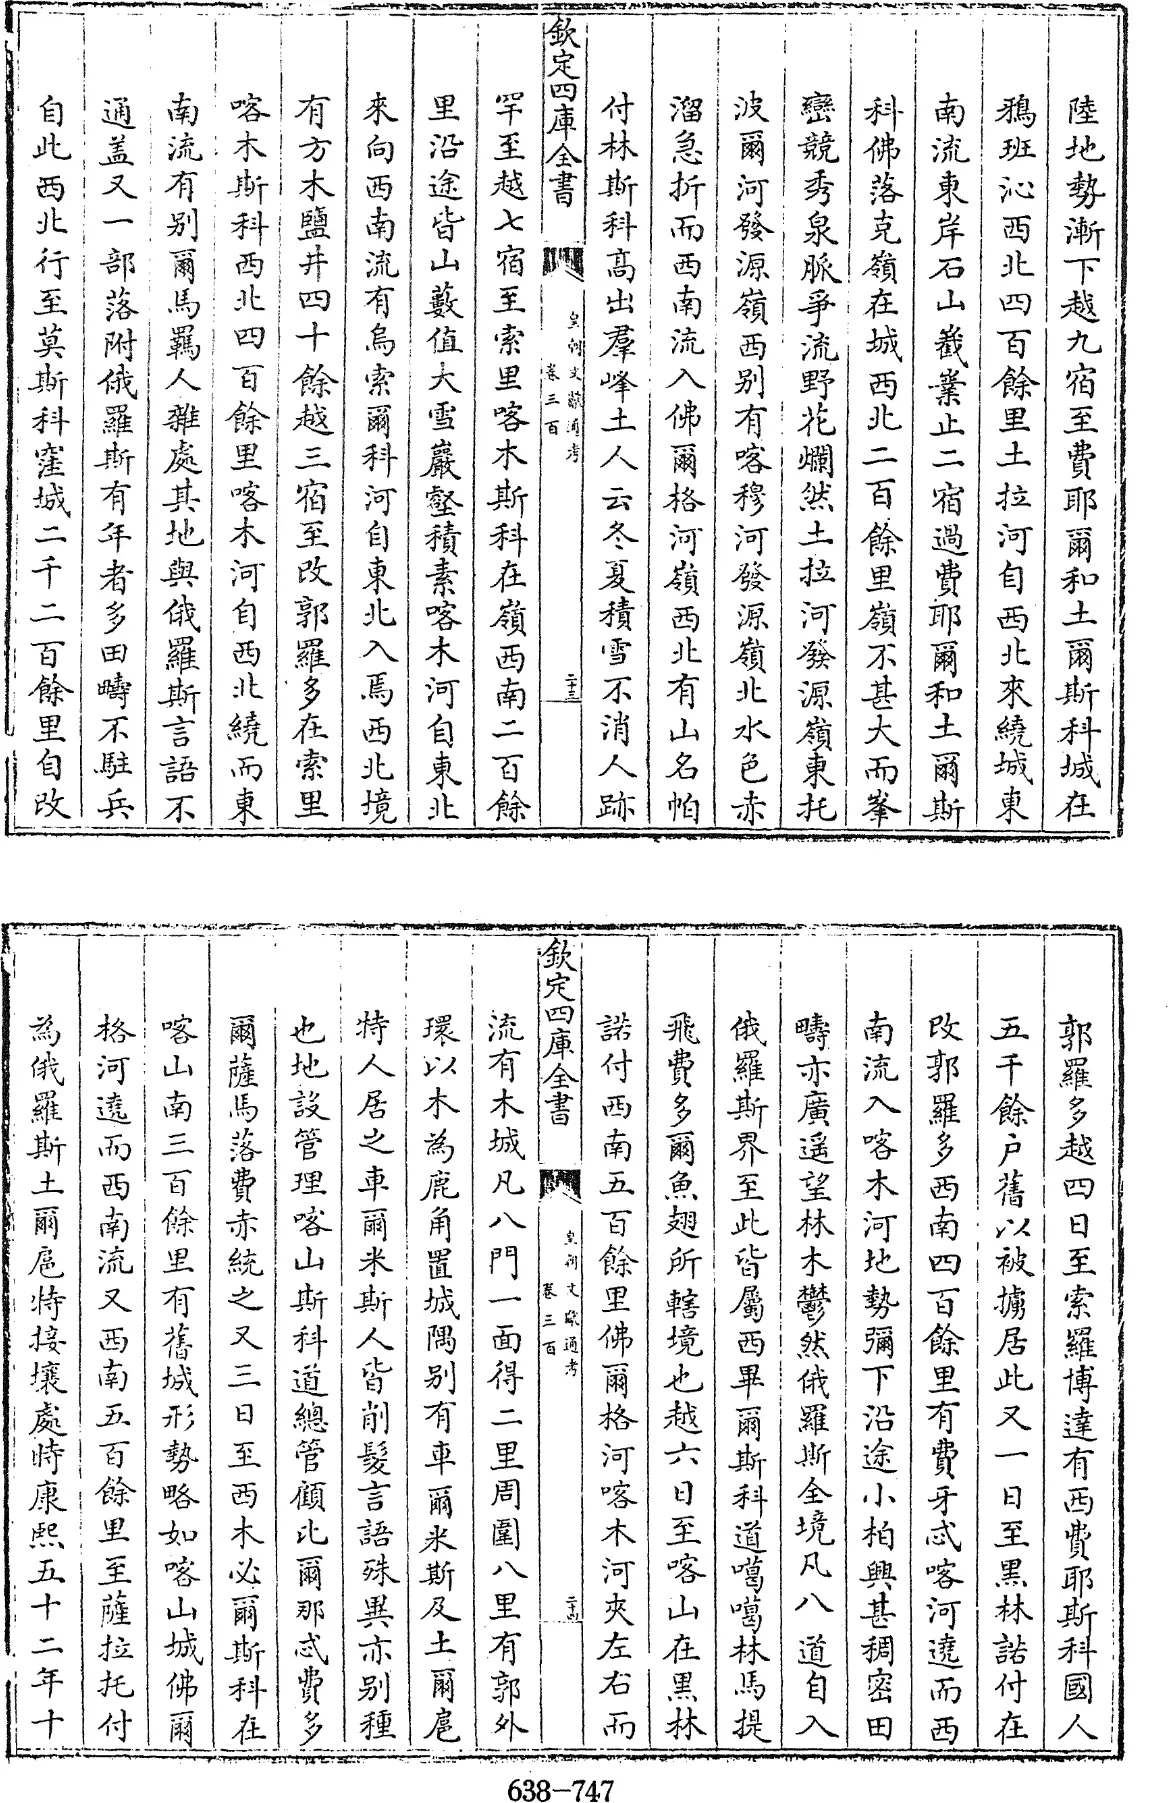 陸地勢漸下越九宿至費耶爾和土爾斯科城在
鴉班沁西北四百餘里土拉河自西北來繞城東
南流東岸石山巀嶪止二宿過費耶爾和土爾斯
科佛落克嶺在城西北二百餘里嶺不甚大而峯
巒競秀泉脈爭流野花爛然土拉河發源嶺東托
波爾河發源嶺西别有喀穆河發源嶺北水色赤
溜急折而西南流入佛爾格河嶺西北有山名帕
付林斯科高出羣峰土人云冬夏積雪不消人跡
欽定四庫全書
皇朝文獻通考
卷三百
二十三
罕至越七宿至索里喀木斯科在嶺西南二百餘
里沿途皆山藪值大雪巖壑積素喀木河自東北
來向西南流有烏索爾科河自東北入焉西北境
有方木鹽井四十餘越三宿至改郭羅多在索里
喀木斯科西北四百餘里喀木河自西北繞而東
南流有别爾馬羈人雜處其地與俄羅斯言語不
通盖又一部落附俄羅斯有年者多田疇不駐兵
自此西北行至莫斯科窪城二千二百餘里自改
郭羅多越四日至索羅博達有西費耶斯科國人
五千餘戶舊以被擄居此又一日至黑林諾付在
改郭羅多西南四百餘里有費牙忒喀河遶而西
南流入喀木河地勢彌下沿途小柏興甚稠密田
疇亦廣遥望林木鬱然俄羅斯全境凡八道自入
俄羅斯界至此皆屬西畢爾斯科道噶噶林馬提
飛費多爾魚翅所轄境也越六日至喀山在黑林
諾付西南五百餘里佛爾格河喀木河夾左右而
欽定四庫全書
皇朝文獻通考
卷三百
二十四
流有木城凡八門一面得二里周圍八里有郭外
環以木為鹿角置城隅别有車爾米斯及土爾扈
特人居之車爾米斯人皆削髮言語殊異亦别種
也地設管理喀山斯科道總管顧比爾那忒費多
爾薩馬落費赤統之又三日至西木必爾斯科在
喀山南三百餘里有舊城形勢略如喀山城佛爾
格河遶而西南流又西南五百餘里至薩拉托付
為俄羅斯土爾扈特接壤處時康熙五十二年十
638-747